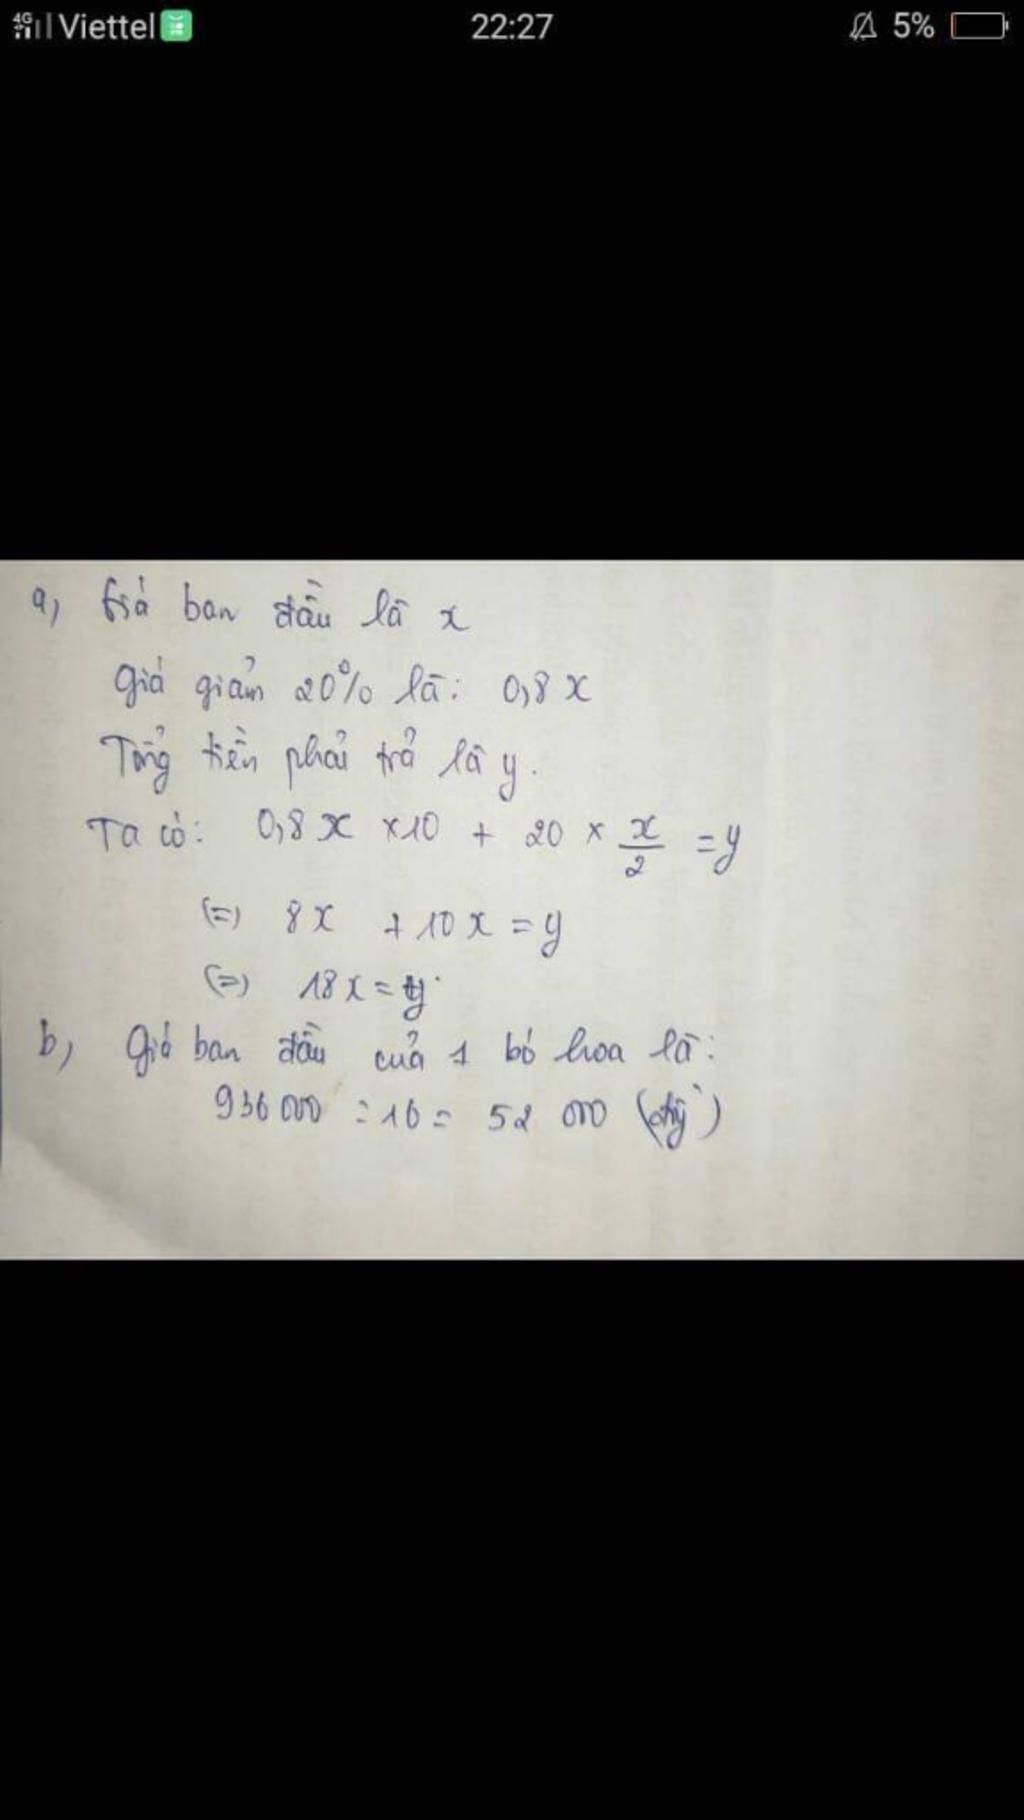 4G Viettel 22:27 5%
a, Giá ban đầu là x
Giá giảm 20% là: 0,8x
Tổng tiền phải trả là y.
Ta có: 0,8x ×10 + 20 × x/2 = y
(=) 8x + 10x = y
(=) 18x = y
b, Giá ban đầu của 1 bó hoa là:
936000 : 18 = 52 000 (đg)